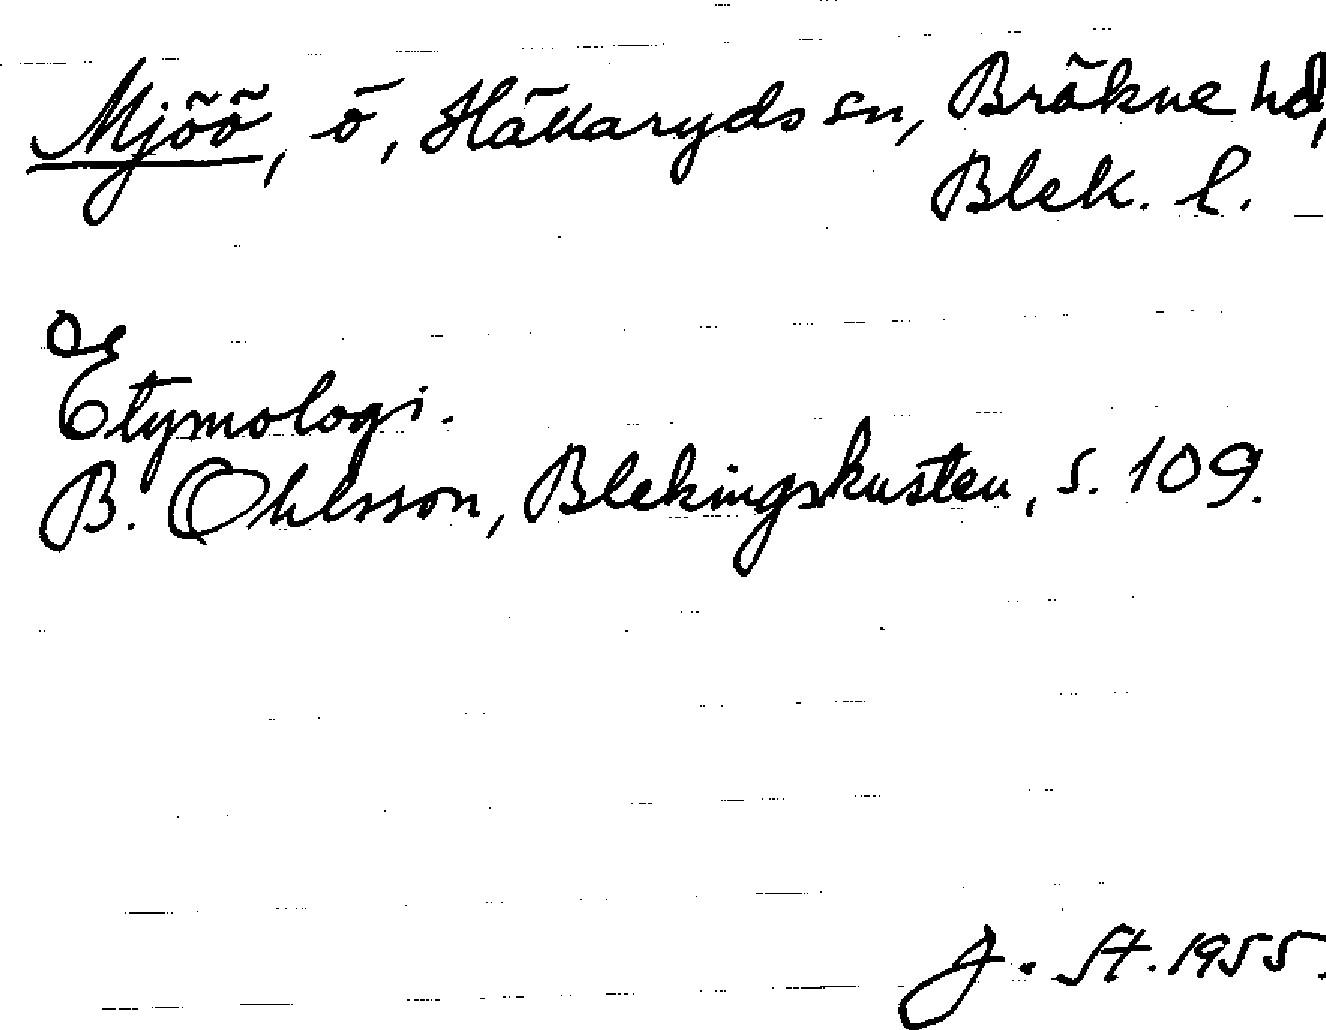 Mjöö, ö, Hällaryds sn, Bräkne hd,
Blek. l.
Etymologi.
B. Ohlsson, Blekingskusten, s. 109.
J. St. 1955.